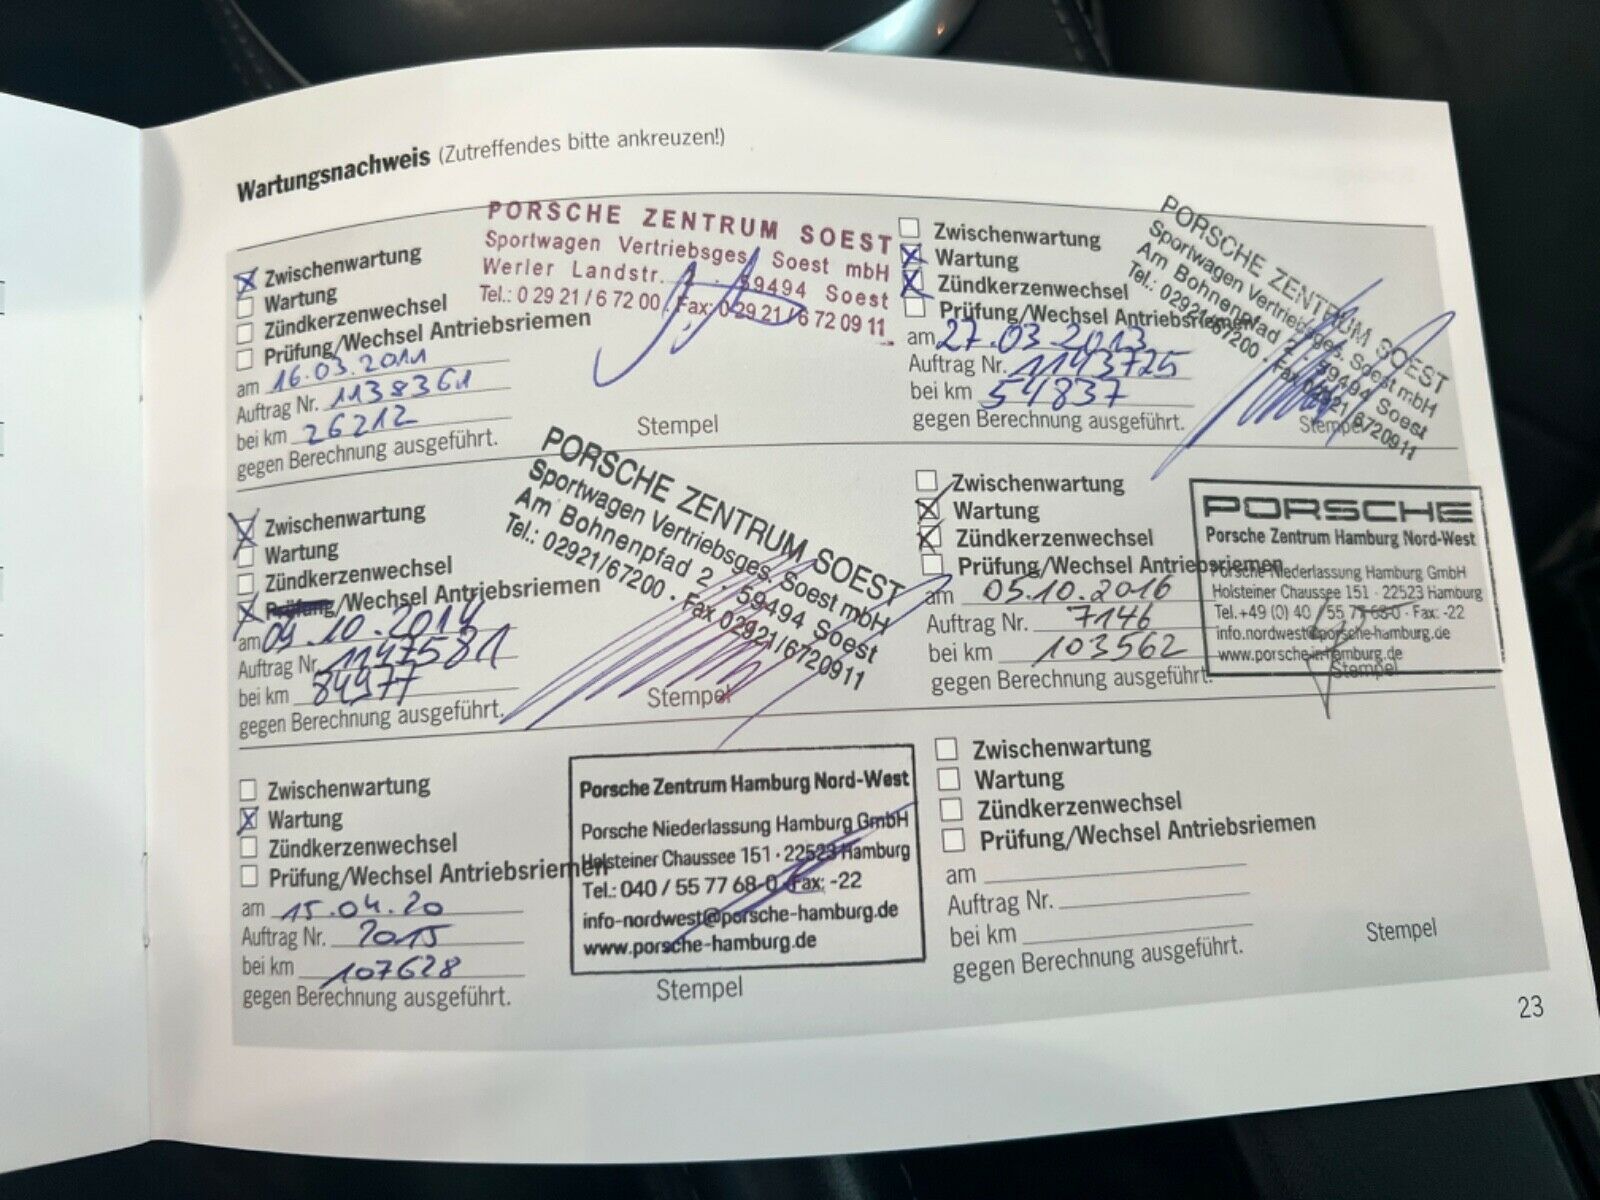 Wartungsnachweis (Zutreffendes bitte ankreuzen!)
Zwischenwartung
Wartung
Zündkerzenwechsel
Prüfung/Wechsel Antriebsriemen
am 16.03.2011
Auftrag Nr. 1138361
bei km 26212
gegen Berechnung ausgeführt.
PORSCHE ZENTRUM SOEST
Sportwagen Vertriebsges. Soest mbH
Werler Landstr. 59494 Soest
Tel.: 0 29 21 / 6 72 00 Fax: 0 29 21 / 6 72 09 11
Stempel
Zwischenwartung
Wartung
Zündkerzenwechsel
Prüfung/Wechsel Antriebsriemen
am 27.03.2013
Auftrag Nr. 1143725
bei km 54837
gegen Berechnung ausgeführt.
PORSCHE ZENTRUM SOEST
Sportwagen Vertriebsges. Soest mbH
Am Bohnenpfad 2 · 59494 Soest
Tel.: 02921/67200 · Fax 02921/6720911
Stempel
Zwischenwartung
Wartung
Zündkerzenwechsel
Prüfung/Wechsel Antriebsriemen
am 09.10.2014
Auftrag Nr. 1147581
bei km 84977
gegen Berechnung ausgeführt.
PORSCHE ZENTRUM SOEST
Sportwagen Vertriebsges. Soest mbH
Am Bohnenpfad 2 · 59494 Soest
Tel.: 02921/67200 · Fax 02921/6720911
Stempel
Zwischenwartung
Wartung
Zündkerzenwechsel
Prüfung/Wechsel Antriebsriemen
am 05.10.2016
Auftrag Nr. 7146
bei km 103562
gegen Berechnung ausgeführt.
PORSCHE
Porsche Zentrum Hamburg Nord-West
Porsche Niederlassung Hamburg GmbH
Holsteiner Chaussee 151 · 22523 Hamburg
Tel.+49 (0) 40 / 55 77 68-0 · Fax: -22
info.nordwest@porsche-hamburg.de
www.porsche-hamburg.de
Stempel
Zwischenwartung
Wartung
Zündkerzenwechsel
Prüfung/Wechsel Antriebsriemen
am 15.04.20
Auftrag Nr. 2015
bei km 107628
gegen Berechnung ausgeführt.
Porsche Zentrum Hamburg Nord-West
Porsche Niederlassung Hamburg GmbH
Holsteiner Chaussee 151 · 22523 Hamburg
Tel.: 040 / 55 77 68-0 Fax: -22
info-nordwest@porsche-hamburg.de
www.porsche-hamburg.de
Stempel
Zwischenwartung
Wartung
Zündkerzenwechsel
Prüfung/Wechsel Antriebsriemen
am
Auftrag Nr.
bei km
gegen Berechnung ausgeführt.
Stempel
23